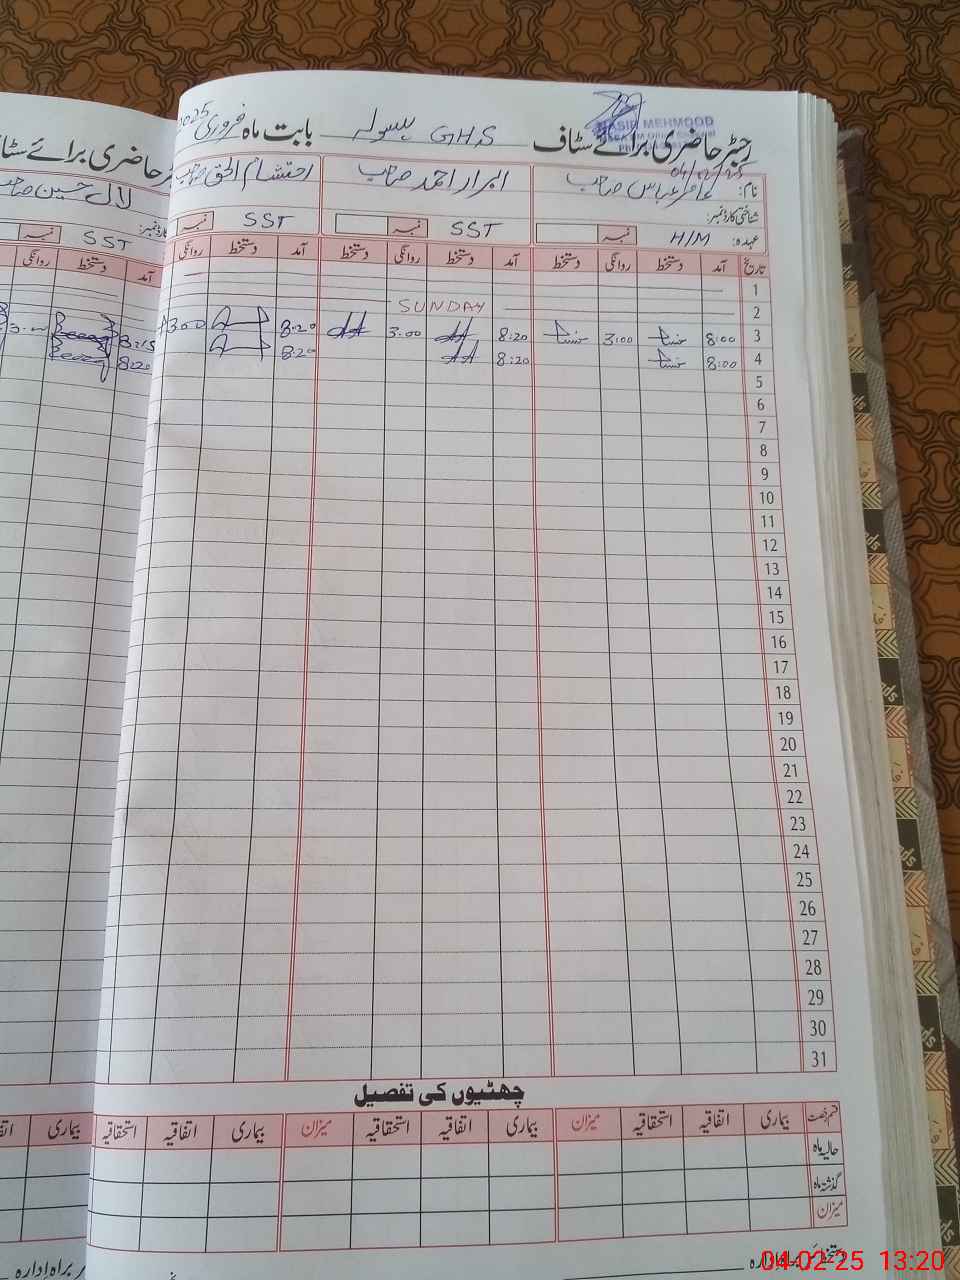 رجسٹر حاضری برائے سٹاف G.H.S بابت ماہ فروری 2025
NASIR MEHMOOD
04/02/25
نام: عامر عباس صاحب ابرار احمد صاحب احتشام الحق صاحب لال حسین صاحب
شناختی کارڈ نمبر:
عہدہ: H/M نمبر SST نمبر SST نمبر SST نمبر
تاریخ آمد دستخط روانگی دستخط آمد دستخط روانگی دستخط آمد دستخط روانگی آمد دستخط روانگی
1
2 SUNDAY
3 8:00 3:00 8:20 3:00 8:20 3:00 8:15 3:00
4 8:00 8:20 8:20 8:20
5
6
7
8
9
10
11
12
13
14
15
16
17
18
19
20
21
22
23
24
25
26
27
28
29
30
31
چھٹیوں کی تفصیل
قسم رخصت بیماری اتفاقیہ استحقاقیہ میزان بیماری اتفاقیہ استحقاقیہ میزان بیماری اتفاقیہ استحقاقیہ بیماری
حالیہ ماہ
گذشتہ ماہ
میزان
دستخط سربراہ ادارہ
04-02-25 13:20